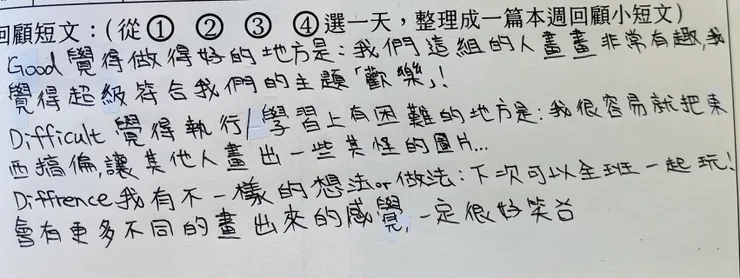 回顧短文：(從 ① ② ③ ④ 選一天，整理成一篇本週回顧小短文)
Good 覺得做得好的地方是：我們這組的人畫畫非常有趣,我
覺得超級符合我們的主題「歡樂」!
Difficult 覺得執行/學習上有困難的地方是：我很容易就把東
西搞偏,讓其他人畫出一些其怪的圖片...
Diffrence 我有不一樣的想法or做法：下次可以全班一起玩!
會有更多不同的畫出來的感覺,一定很好笑台